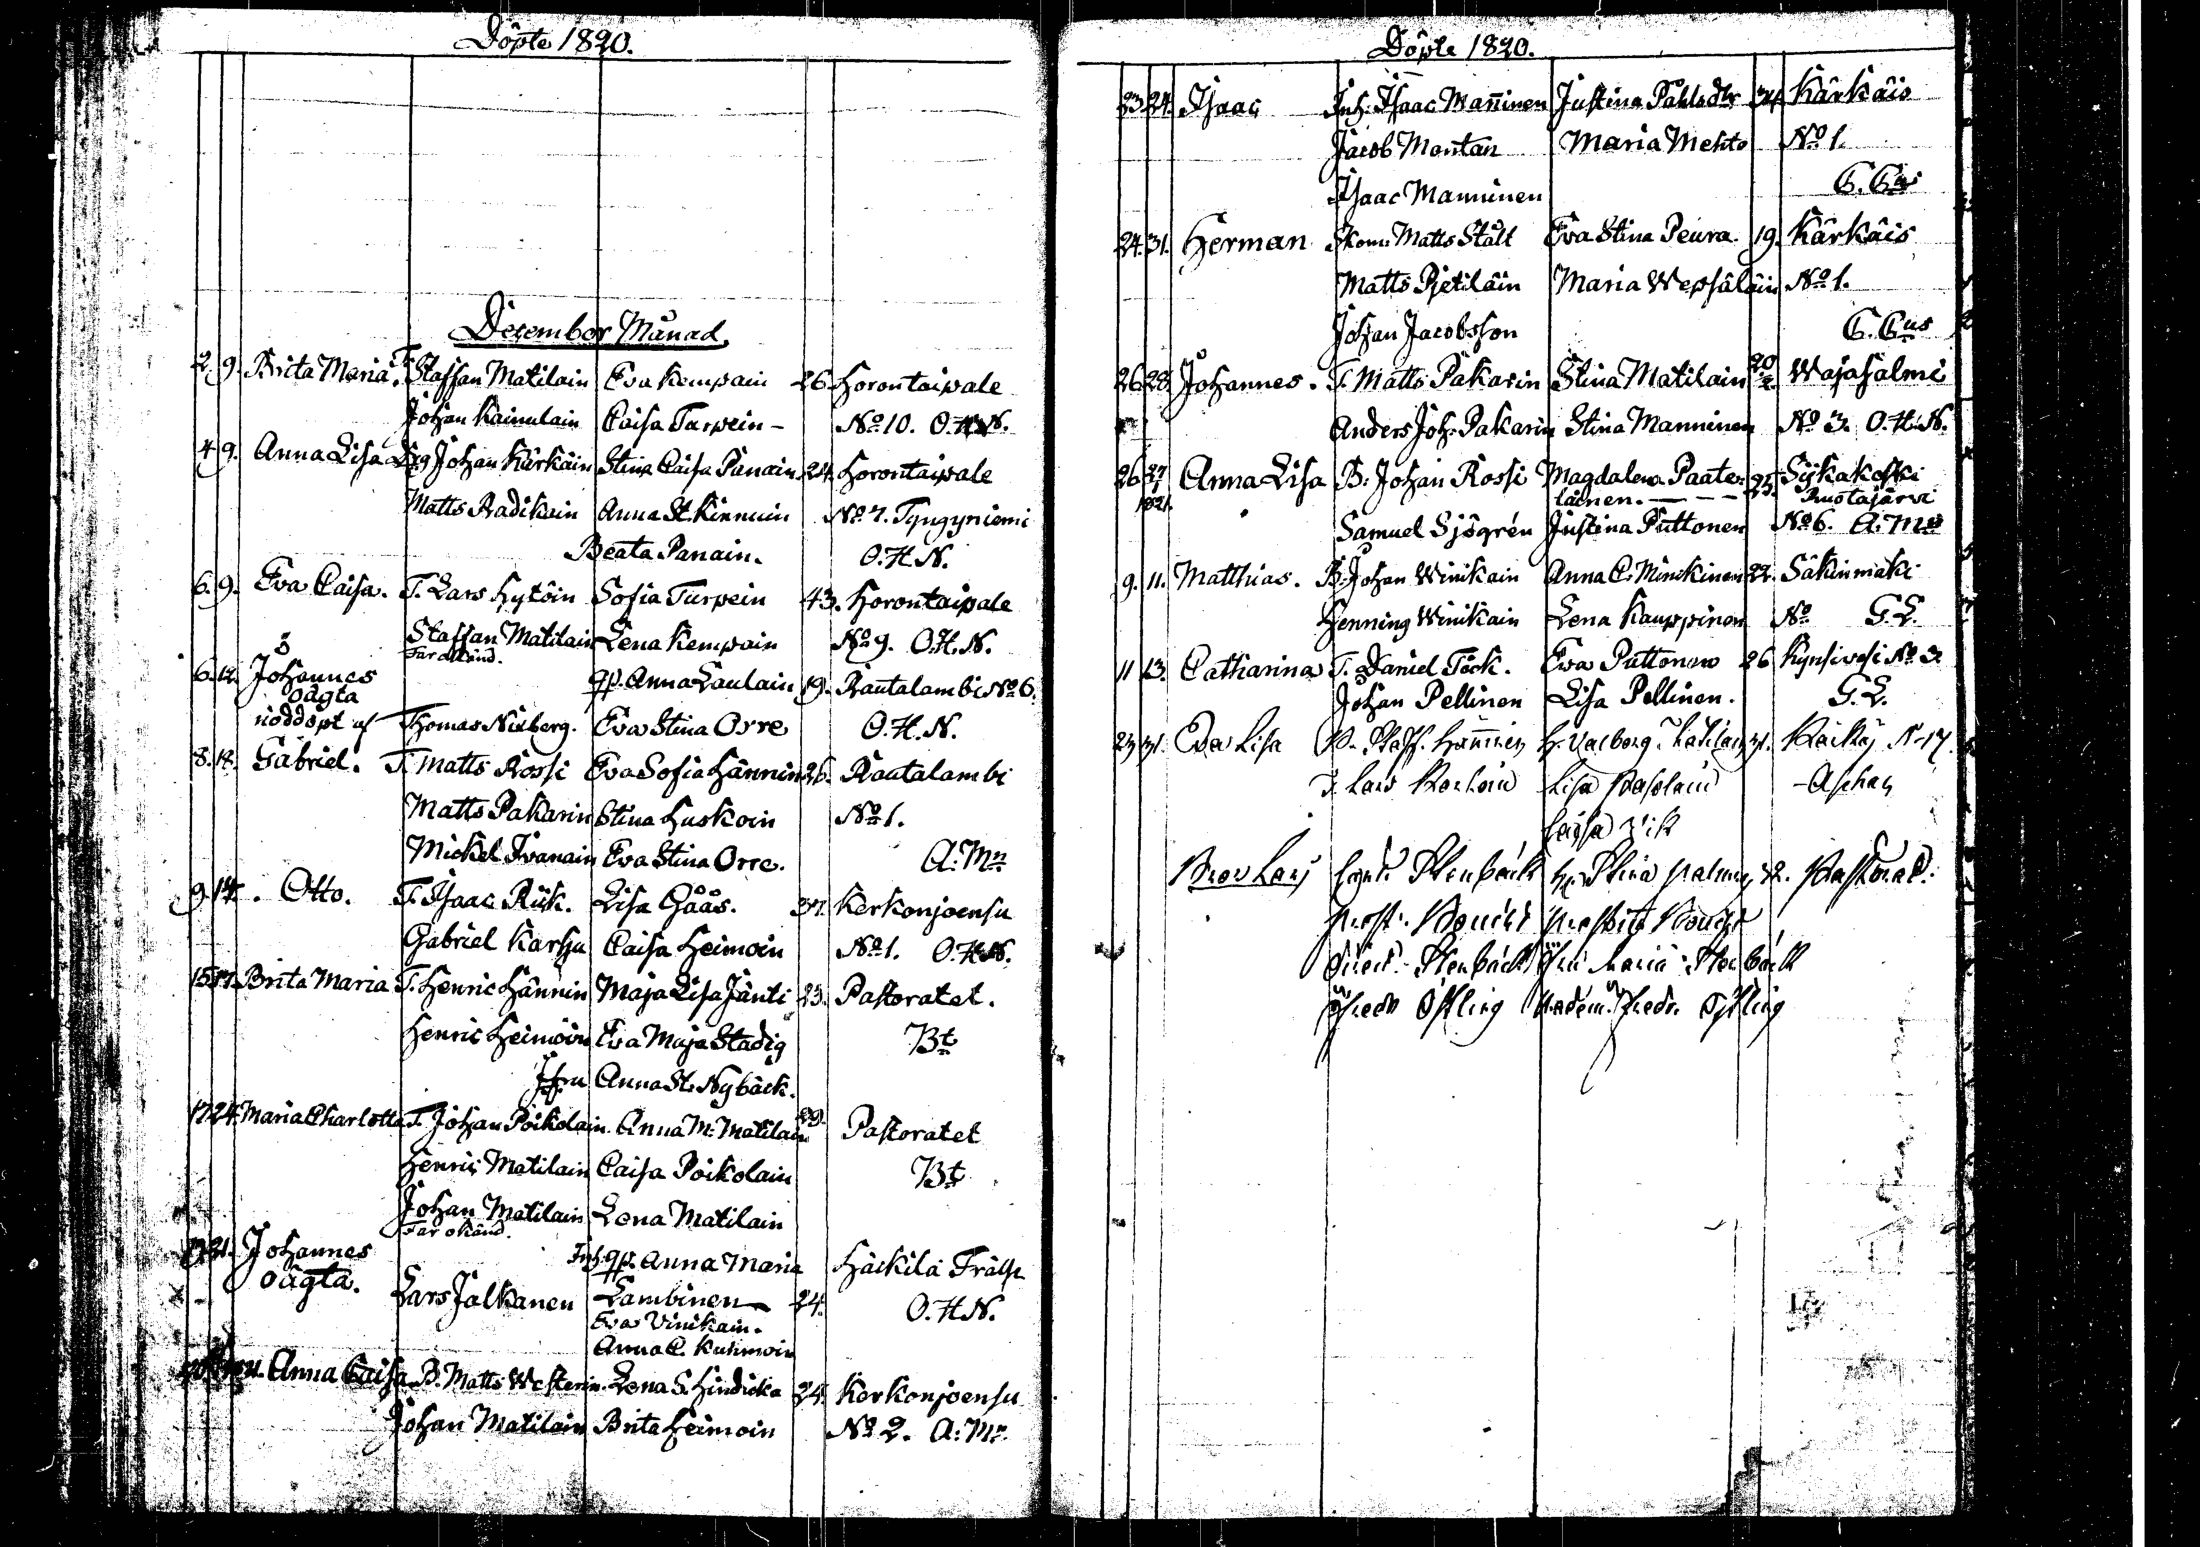 Döpte 1820.
December Månad.
2. 9. Brita Maria. T. Staffan Matilain Eva Kempain 26. Horontaipale
Johan Kainulain Caisa Turpein - No 10. O.H.N.
4. 9. Anna Lisa Johan Kärkäin Stina Caisa Panain 24. Horontaipale
Matts Radikain Anna St. Kinnuin No 7. Tyngyniemi
Beata Panain. O.H.N.
6. 9. Eva Caisa. T. Lars Hytöin Sofia Turpein 43. Horontaipale
Staffan Matilain Lena Kempain No 9. O.H.N.
Far okänd.
6. 12. Johannes qp. Anna Laulain 19. Rautalambi No 6.
oägta
nöddöpt af Thomas Niberg. Eva Stina Orre O.H.N.
8. 14. Gabriel. T. Matts Rossi Eva Sofia Hännin 26. Rautalambi
Matts Pakarin Stina Huskoin No 1.
Mickel Ivanain Eva Stina Orre. A: Mn
9. 14. Otto. T. Isaac Riik. Lisa Gåås. 37. Kerkonjoensu
Gabriel Karhu Caisa Heimoin No 1. O.H.N.
15. 17. Brita Maria T. Henric Hännin Maja Lisa Jänti 23. Pastoratet.
Henric Heimoin Eva Maja Stadig Bt
Jfru Anna St. Nybäck.
17. 24. Maria Charlotta T. Johan Poikolain. Anna M: Matilain 29. Pastoratet
Henric Matilain Caisa Poikolain Bt
Johan Matilain Lena Matilain
Far okänd.
21. Johannes Inh. qp. Anna Maria Häckilä Frälse
oägta. Lars Jalkanen Lambinen 24. O.H.N.
Eva Vinikain.
Anna C. Kuhmoin
Anna Caisa B. Matts Westerin. Lena S. Hindicka 24. Kerkonjoensu
Johan Matilain Brita Heimoin No 2. A: Mn
Döpte 1820.
23. 24. Isaac Inh. Isaac Manninen Justina Påhlsdtr 34 Kärkäis
Jacob Montan Maria Mehto No 1.
Isaac Manninen G. Gus
24. 31. Herman Skom. Matts Stålt Eva Stina Peura. 19. Kärkäis
Matts Pjetiläin Maria Wepsäläin No 1.
Johan Jacobsson G. Gus
26. 28. Johannes. T. Matts Pakarin Stina Matilain 20 Wajasalmi
Anders Joh. Pakarin Stina Manninen No 3. O.H.N.
26. 27. Anna Lisa B: Johan Rossi Magdalena Paate- 25. Syikakoski
1821. läinen. - - - Ruotajärvi
Samuel Sjögrén Justina Puttonen No 6. A: Mn
9. 11. Matthias. B. Johan Winikain Anna C. Minckinen 22. Säkinmäki
Henning Winikain Lena Kauppinen No G.L.
11 13. Catharina T. Daniel Töck. Eva Puttonen 26 Kynsivesi No 3
Johan Pellinen Lisa Pellinen. G.L.
23 31. Eva Lisa Staff. Hänninen H. Valborg 31. N-17
T. Lars Lisa
Caisa Vik
Stenbäck Stina 32. Pastorat.
Stenbäck Jfru Maria Stenbäck
Östling